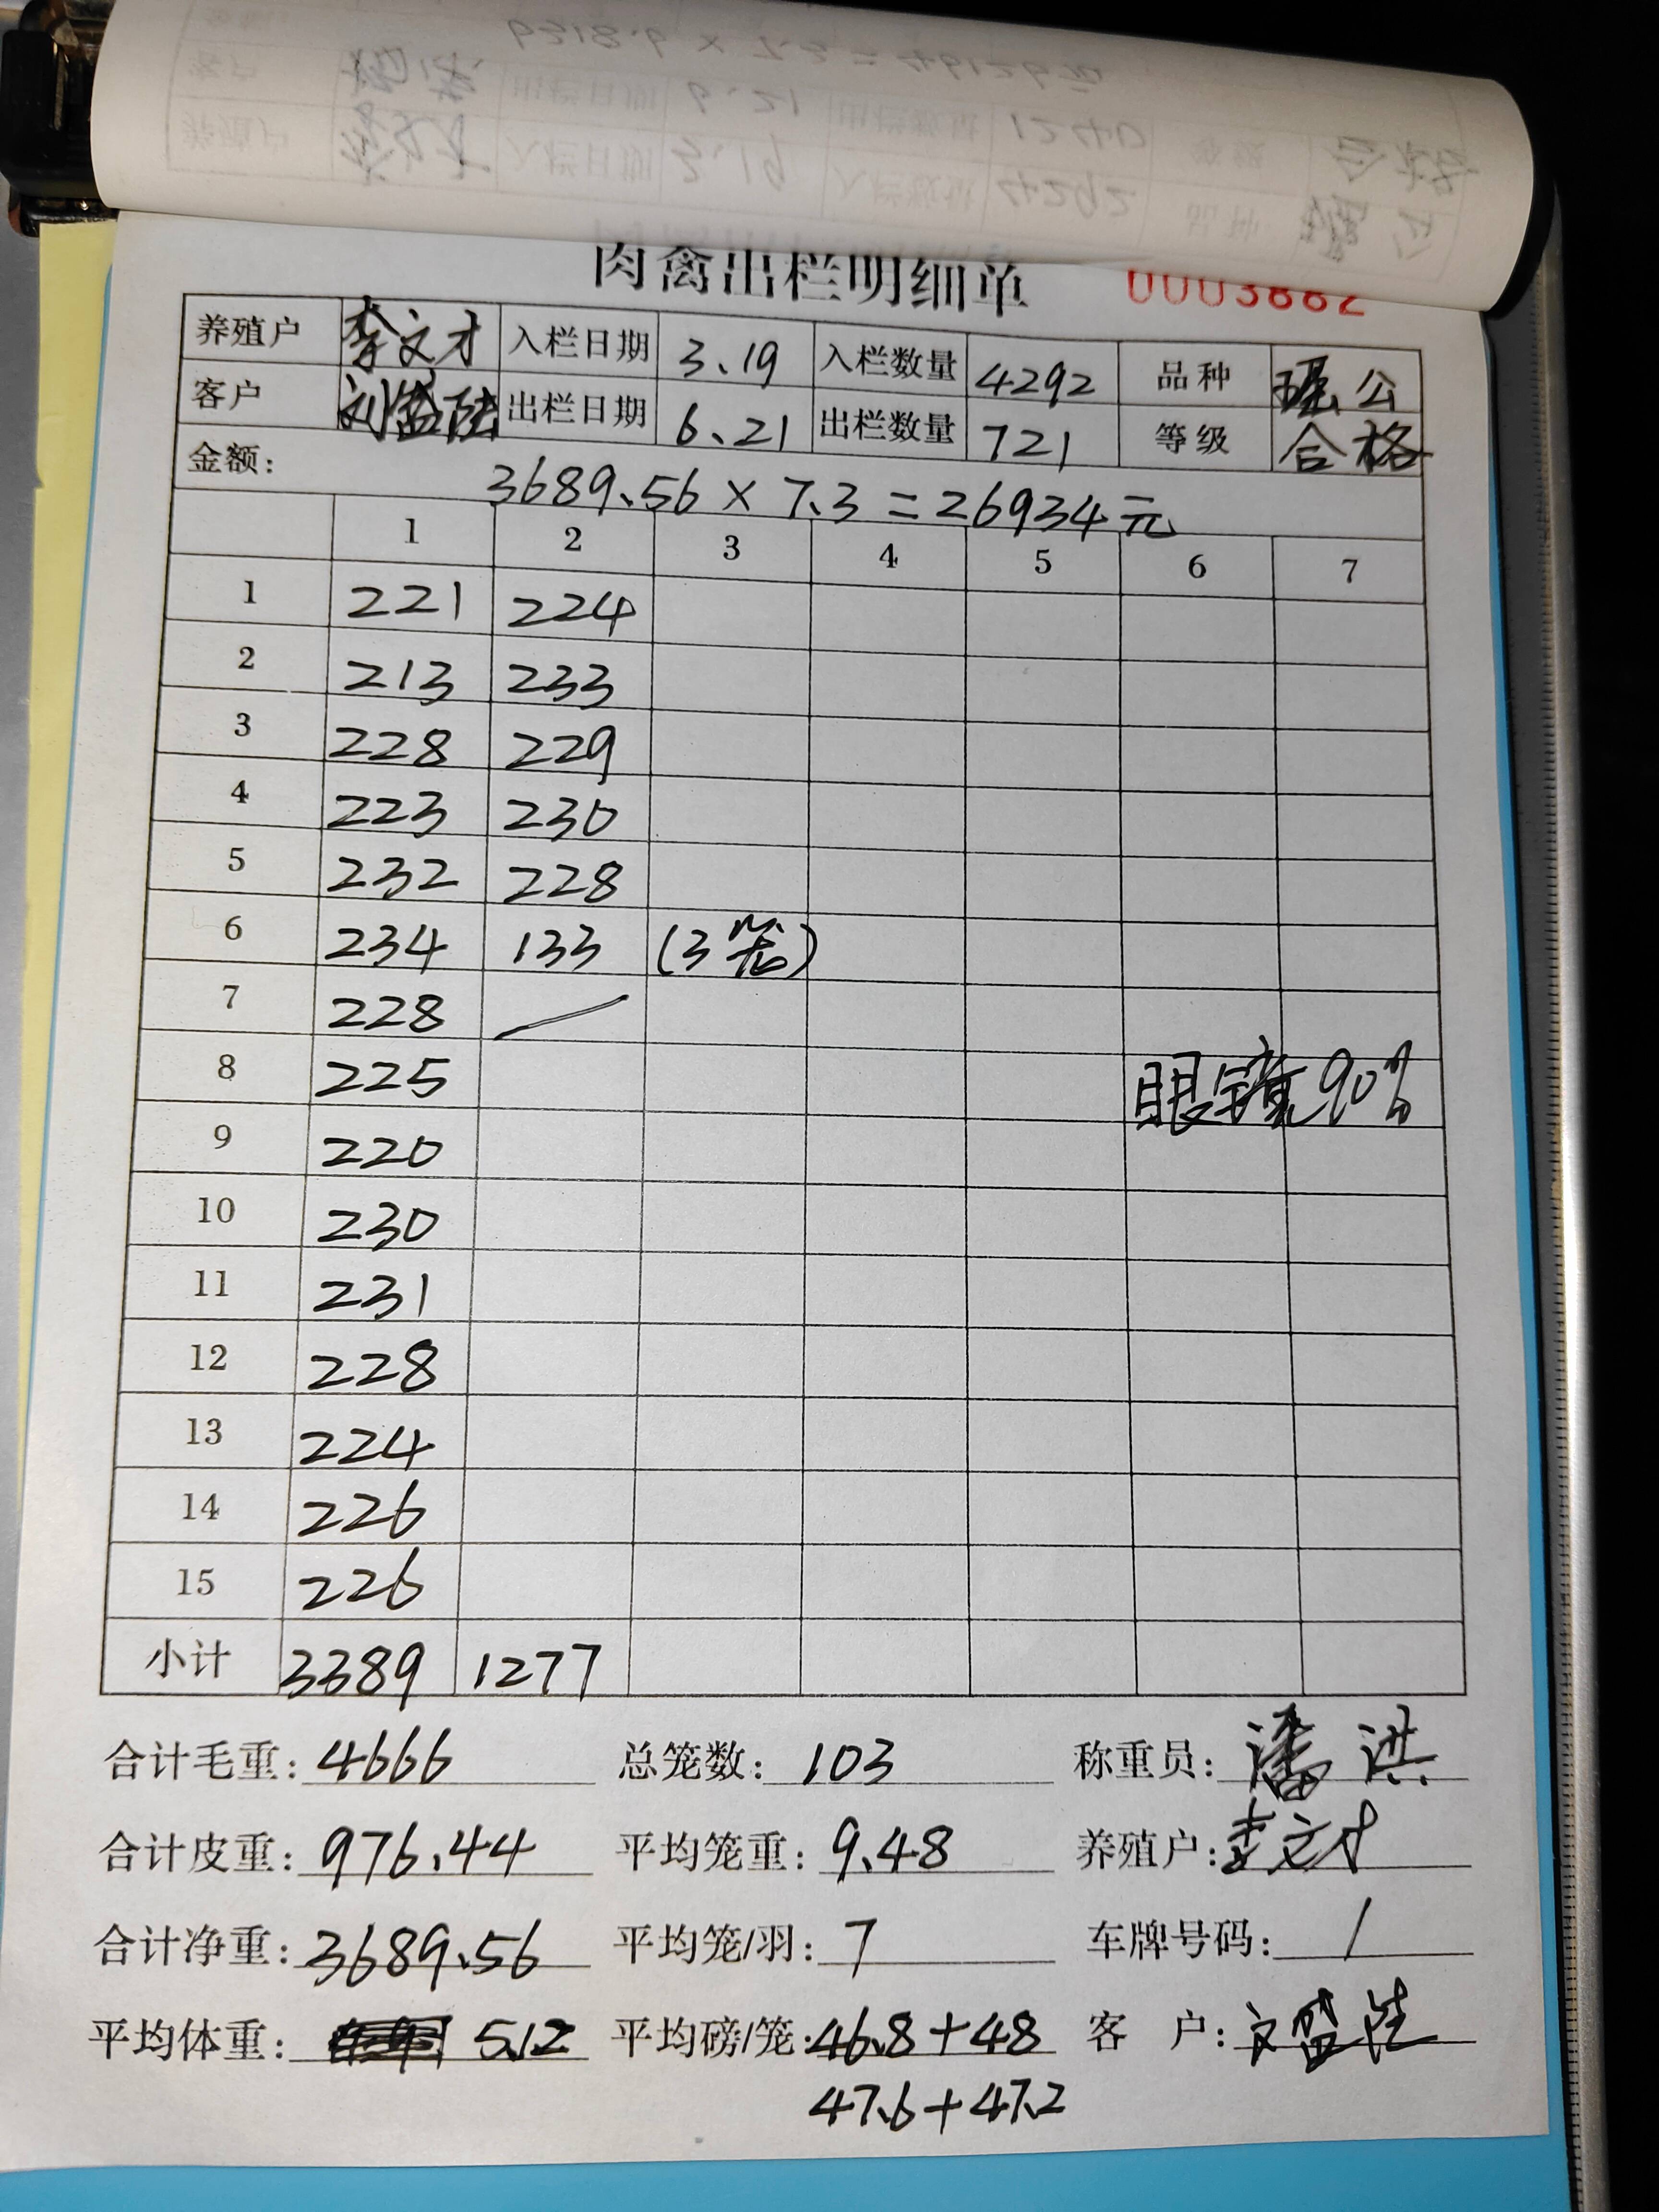 肉禽出栏明细单 0003882
养殖户 李文才 入栏日期 3.19 入栏数量 4292 品种 瑶公
客户 刘盛陆 出栏日期 6.21 出栏数量 721 等级 合格
金额: 3689.56 × 7.3 = 26934元
1 2 3 4 5 6 7
1 221 224
2 213 233
3 228 229
4 223 230
5 232 228
6 234 133 (3笼)
7 228
8 225 眼镜90%
9 220
10 230
11 231
12 228
13 224
14 226
15 226
小计 3389 1277
合计毛重: 4666 总笼数: 103 称重员: 潘洪
合计皮重: 976.44 平均笼重: 9.48 养殖户: 李文才
合计净重: 3689.56 平均笼/羽: 7 车牌号码: /
平均体重: 5.12 平均磅/笼: 46.8+48 客 户:
47.6+47.2